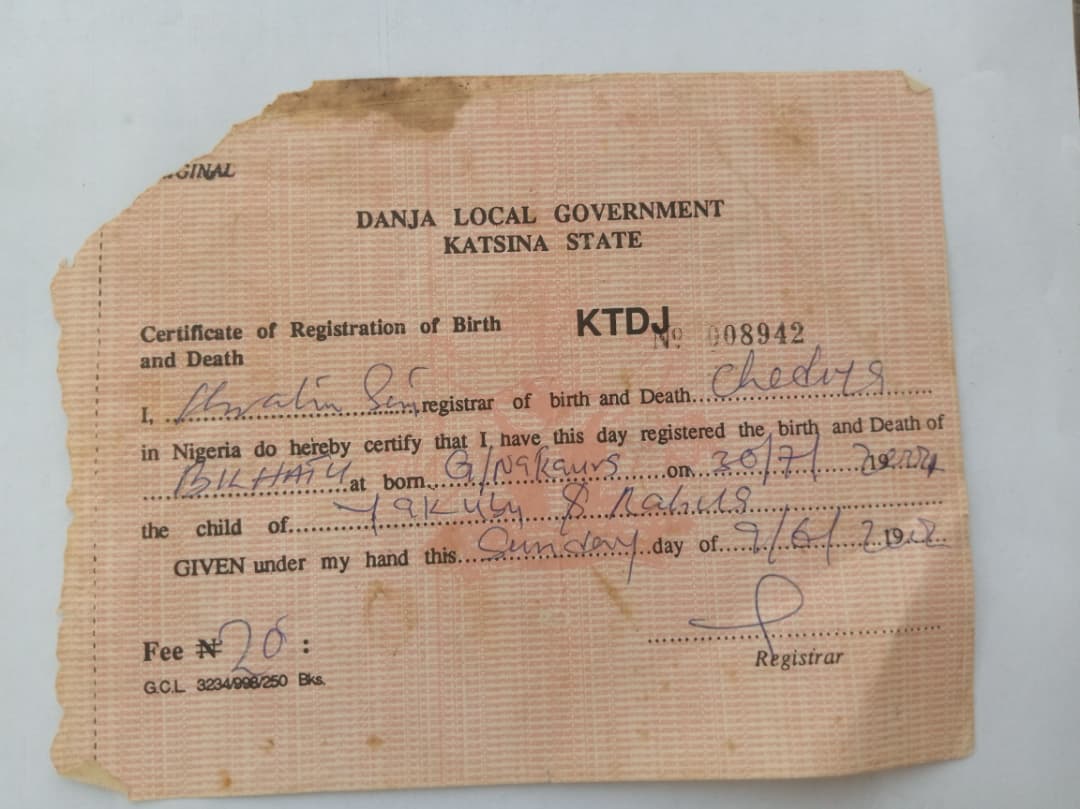 GINAL
DANJA LOCAL GOVERNMENT
KATSINA STATE
Certificate of Registration of Birth
and Death
KTDJ
Nº 008942
I, registrar of birth and Death Chediya
in Nigeria do hereby certify that I have this day registered the birth and Death of
at born G/Nakaura on 30/7/
the child of Yakubu & Rabia
GIVEN under my hand this Sunday day of 9/6/
Fee ₦ 20 :
Registrar
G.C.L 3234/998/250 Bks.